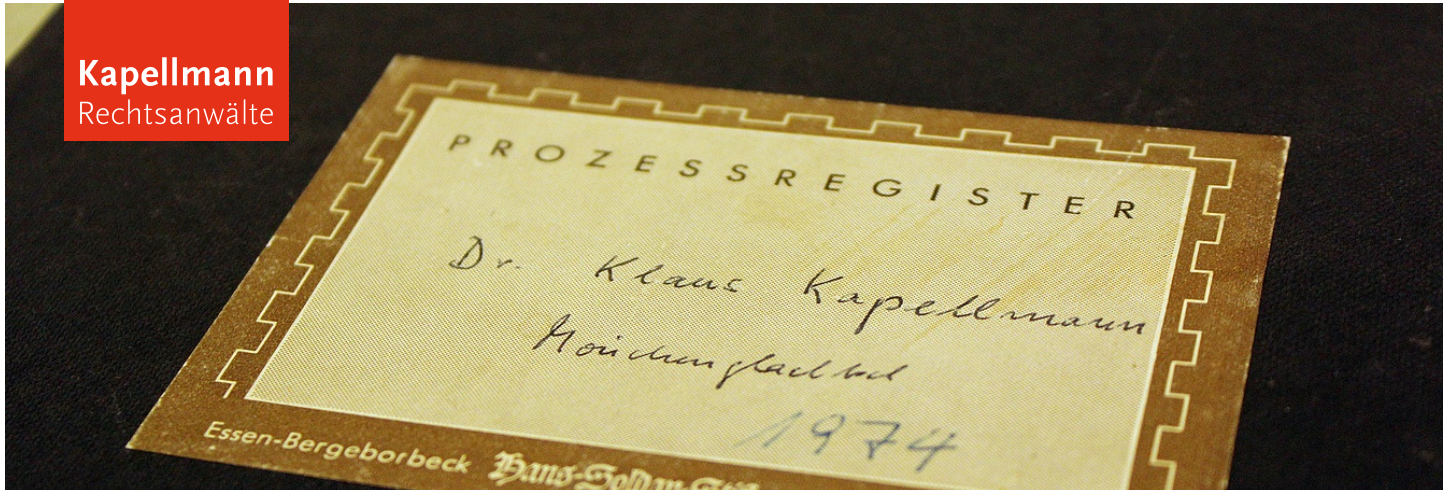 Kapellmann
Rechtsanwälte
PROZESSREGISTER
Dr. Klaus Kapellmann
Mönchengladbach
1974
Essen-Bergeborbeck Hans-Soldan-